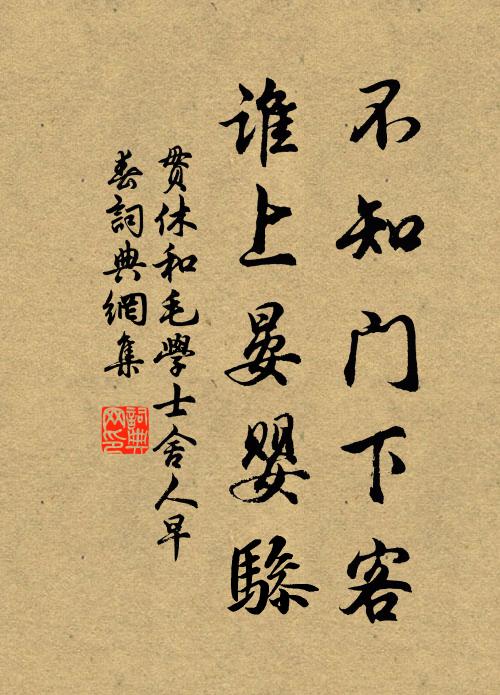 不知门下客
谁上晏婴驂
贯休和毛學士舍人早
春詞典網集
詞典
网印